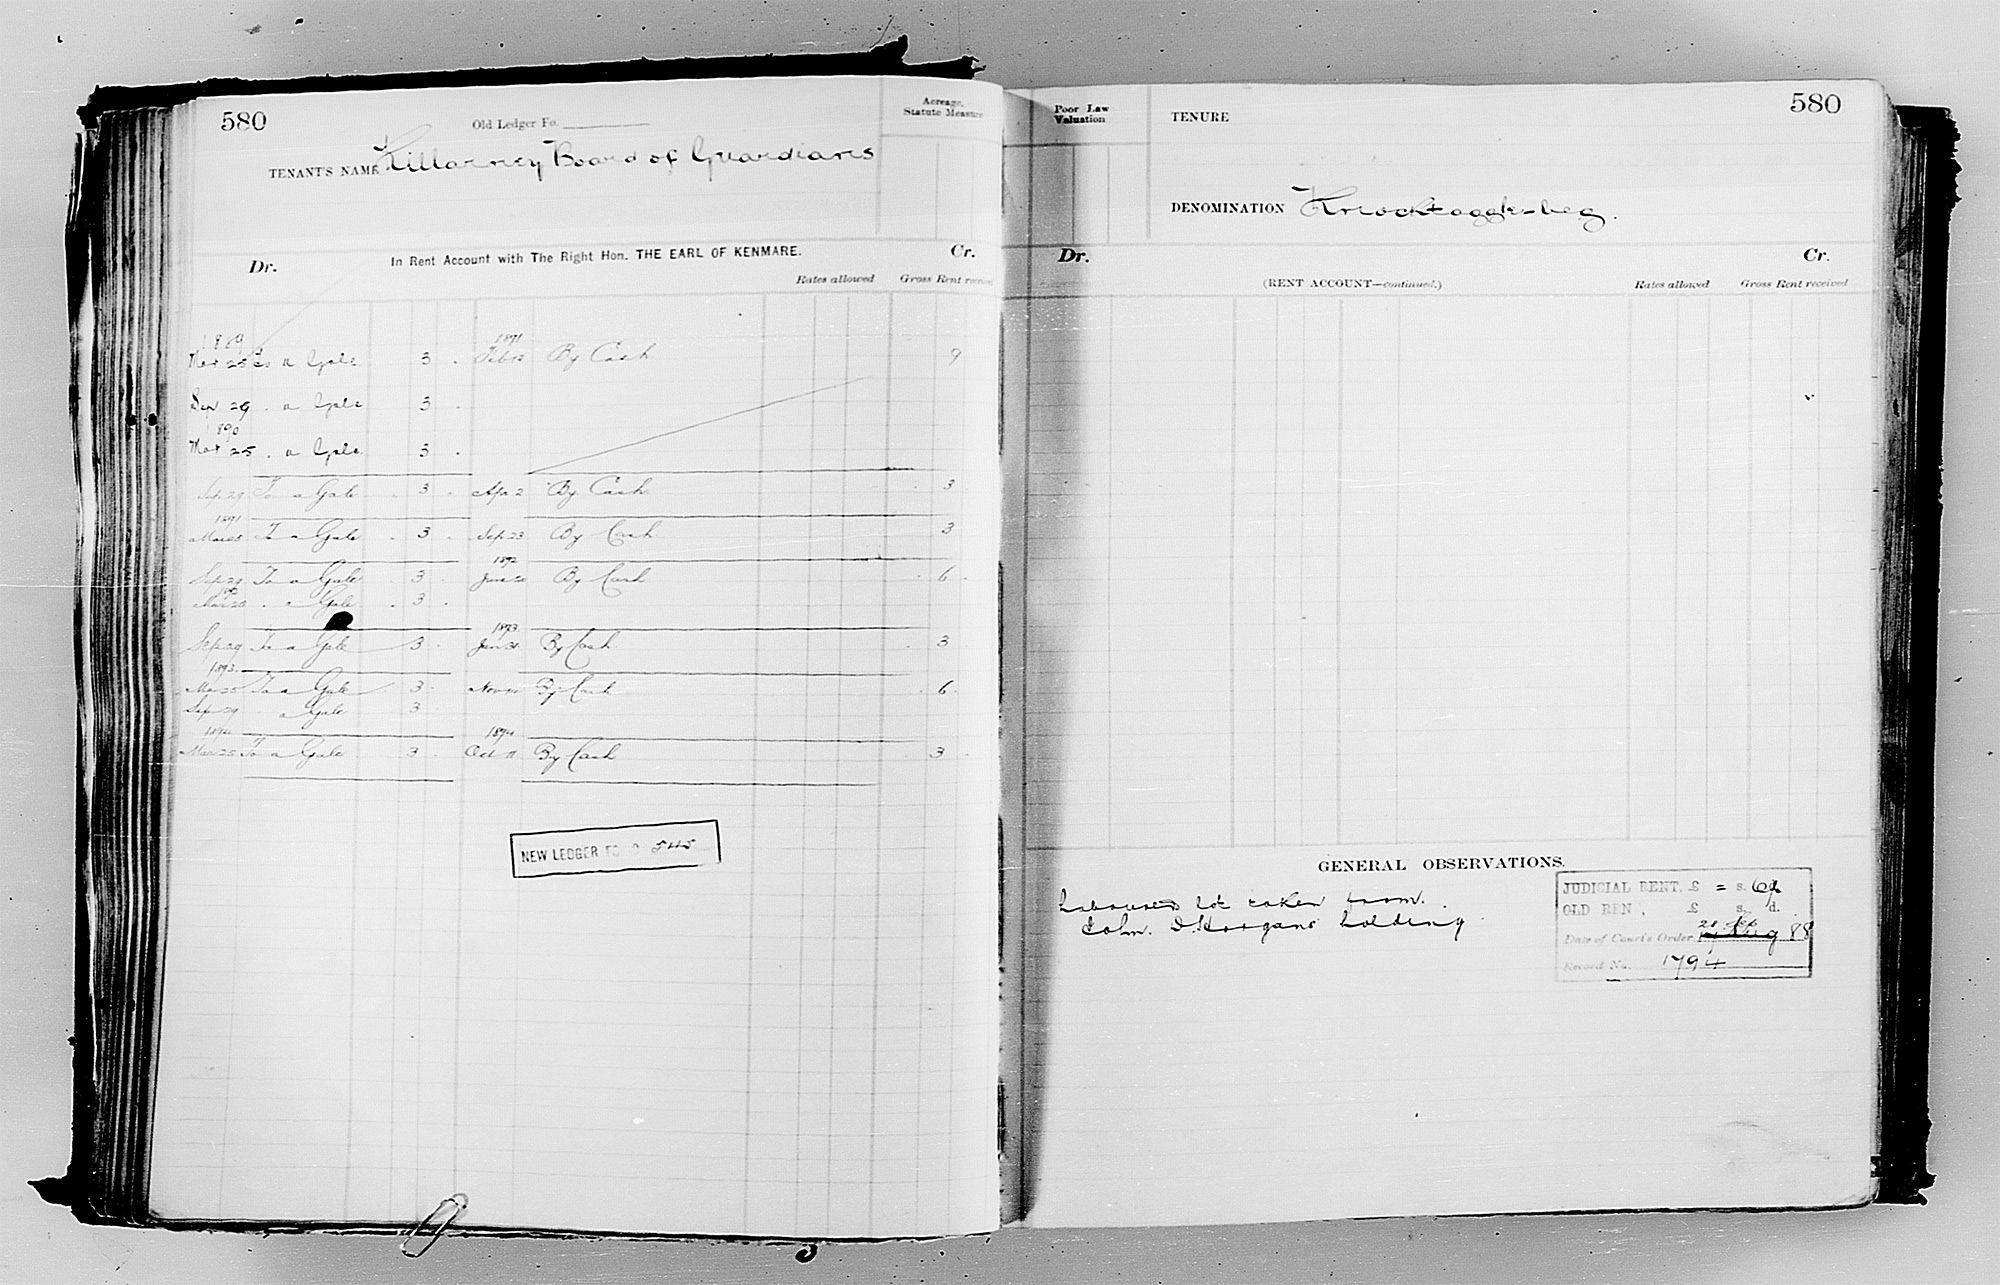 580
Old Ledger Fo.
Acreage, Statute Measure
TENANT'S NAME Killarney Board of Guardians
Dr. In Rent Account with The Right Hon. THE EARL OF KENMARE. Cr.
Rates allowed Gross Rent received
1889 1891
Mar 25 To a Gale 3 . Feb By Cash 9
Sep 29 . a Gale 3 .
1890
Mar 25 . a Gale 3 .
Sep 29 To a Gale . 3 . Apr 2 By Cash 3
1891
Mar 25 To a Gale . 3 Sep 23 By Cash 3
1892
Sep 29 To a Gale . 3 . June 20 By Cash . 6 .
1892
Mar 25 . a Gale . 3 .
1893
Sep 29 To a Gale 3 . Jan 31 By Cash . 3
1893
Mar 25 To a Gale 3 . Nov By Cash . 6 .
Sep 29 a Gale 3
1894 1894
Mar 25 To a Gale 3 . Oct 11 By Cash 3 .
NEW LEDGER FO 545
580
Poor Law Valuation
TENURE
DENOMINATION
Dr. Cr.
(RENT ACCOUNT—continued.) Rates allowed Gross Rent received
GENERAL OBSERVATIONS.
Labourers lot taken from
Colm. D. Horgans holding
JUDICIAL RENT, £ = s. 6 d.
OLD REN , £ s. d.
Date of Court's Order, Aug 88
Record No. 1794